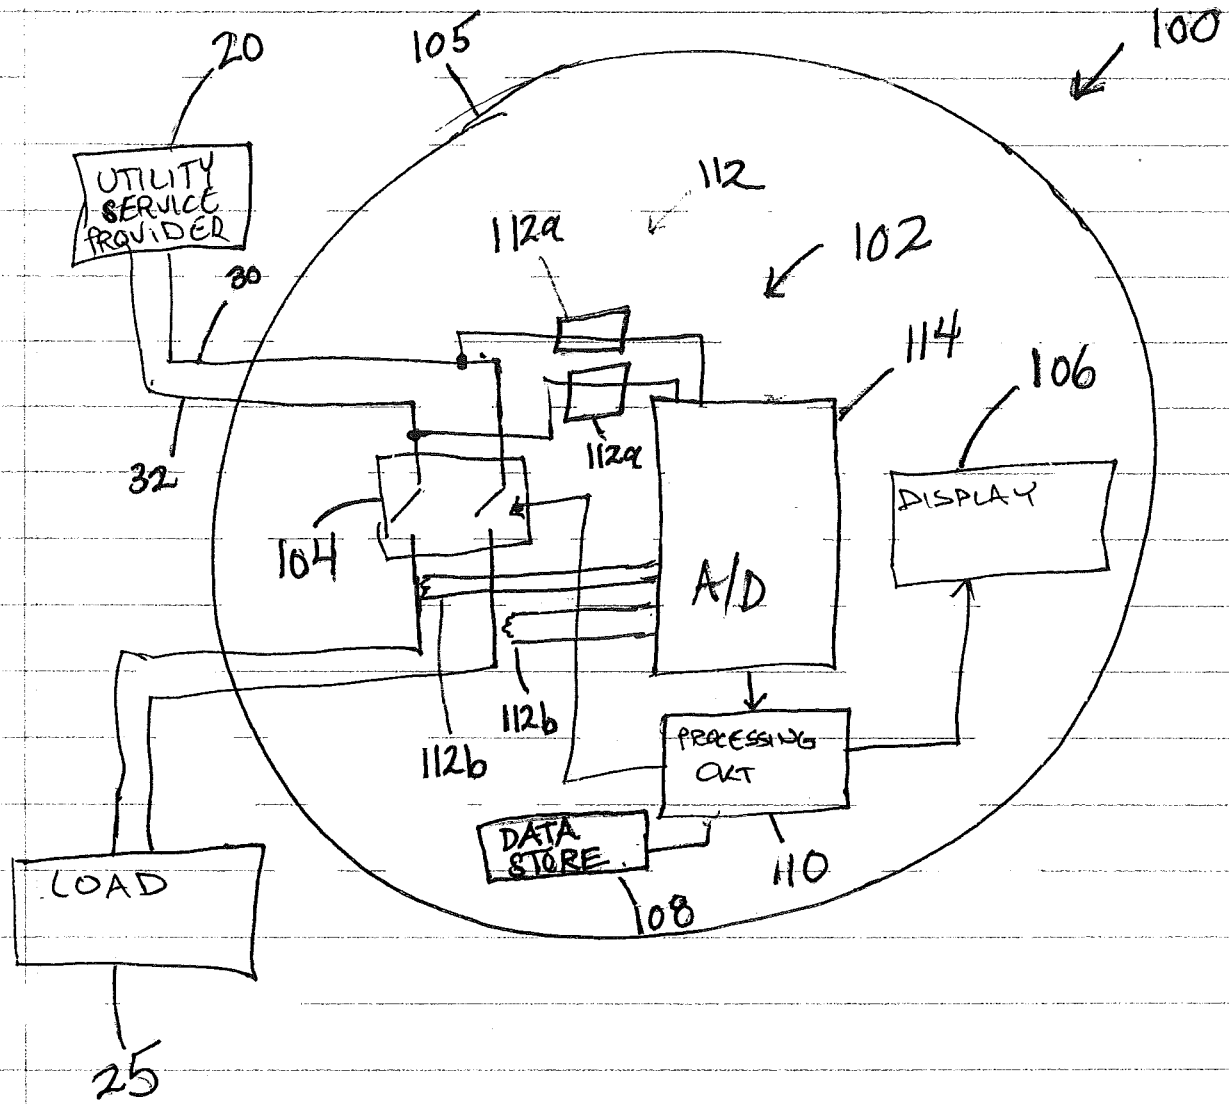 100
20
105
UTILITY
SERVICE
PROVIDER
112
112a
102
30
114
106
32
112a
DISPLAY
104
A/D
112b
112b
PROCESSING
CKT
DATA
STORE
110
LOAD
108
25